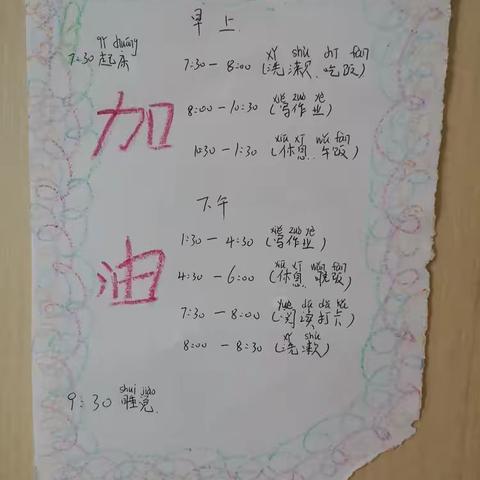 早上
qǐ chuáng
7:30 起床
xǐ shù chī fàn
7:30 — 8:00 (洗漱、吃饭)
加
xiě zuò yè
8:00 — 10:30 (写作业)
xiū xi wǔ fàn
10:30 — 1:30 (休息、午饭)
下午
xiě zuò yè
1:30 — 4:30 (写作业)
油
xiū xi wǎn fàn
4:30 — 6:00 (休息、晚饭)
yuè dú dǎ kǎ
7:30 — 8:00 (阅读打卡)
xǐ shù
8:00 — 8:30 (洗漱)
shuì jiào
9:30 睡觉